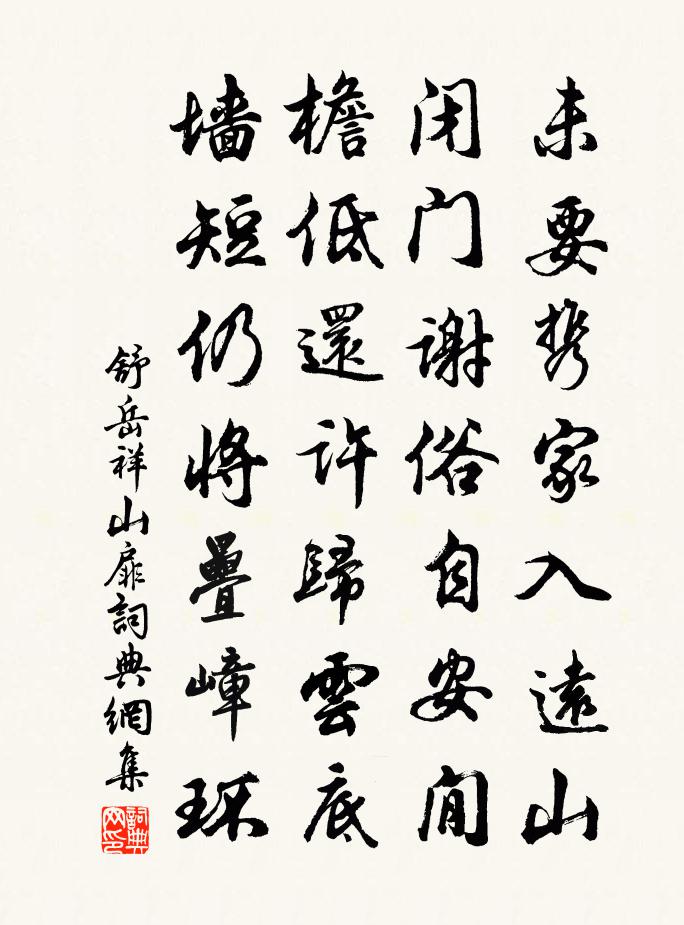 未要携家入遠山
闭门谢俗自安閒
檐低還許歸雲底
墙短仍将疊嶂环
舒岳祥山扉詞典網集
詞典网印